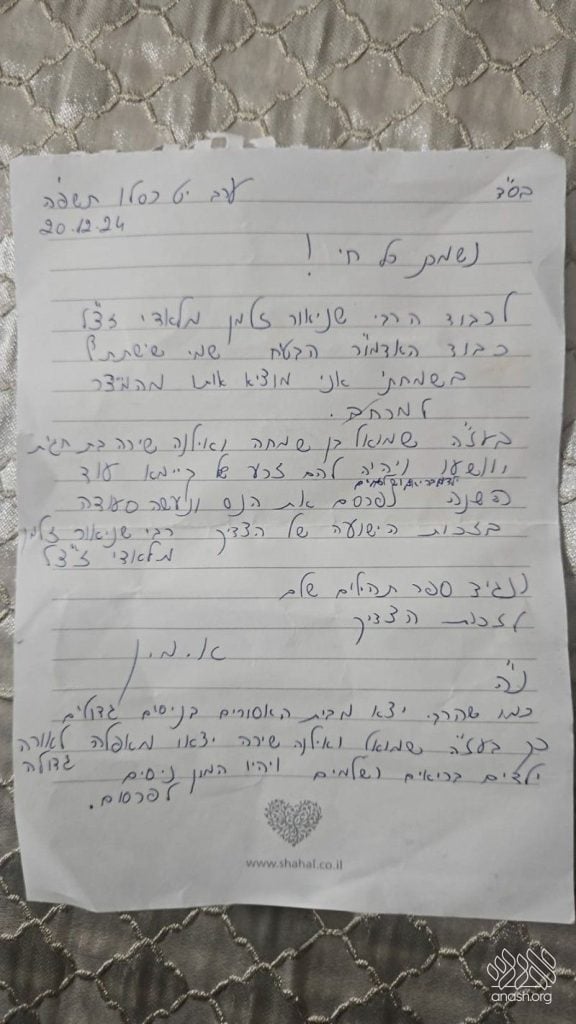 בס"ד
ערב יט כסלו תשפ"ה
20.12.24
נשמת כל חי !
לכבוד הרבי שניאור זלמן מלאדי זצ"ל
כבוד האדמו"ר הבטיח שמי שישמח
בשמחתי אני מוציא אותו מהמיצר
למרחב.
בעז"ה שמואל בן שמחה ואילנה שירה בת חגית
יוושעו ויהיה להם זרע של קיימא עוד
השנה לפרסם את הנס ונעשה סעודה
בזכות הישועה של הצדיק רבי שניאור זלמן
מלאדי זצ"ל
ונגיד ספר תהילים שלם
לזכות הצדיק
א.מ.ן
נ"ב
כמו שהרב יצא מבית האסורים בניסים גדולים
כך בעז"ה שמואל ואילנה שירה יצאו מאפלה לאורה גדולה
ילדים בריאים ושלמים ויהיו המון ניסים
לפרסום.
www.shahal.co.il
anash.org